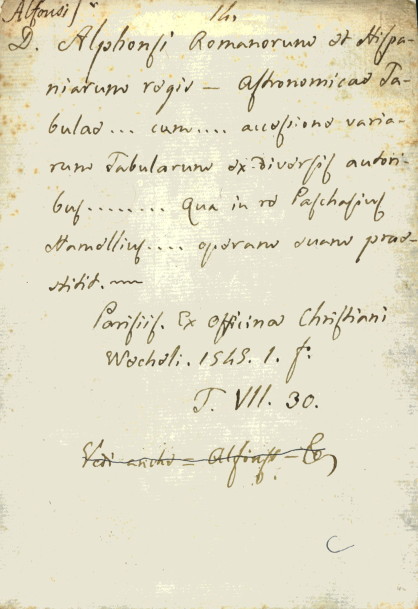 Alfonsi
14.
D. Alphonsi Romanorum et Hispa-
niarum regis — Astronomicae Ta-
bulae ... cum .... accessione varia-
rum Tabularum ex diversis autori-
bus ........ Qua in re Paschasius
Hamellius .... operam suam prae-
stitit.
Parisiis. Ex Officina Christiani
Wecheli. 1545. 1. f.
T. VII. 30.
Vedi anche = Alfonso =